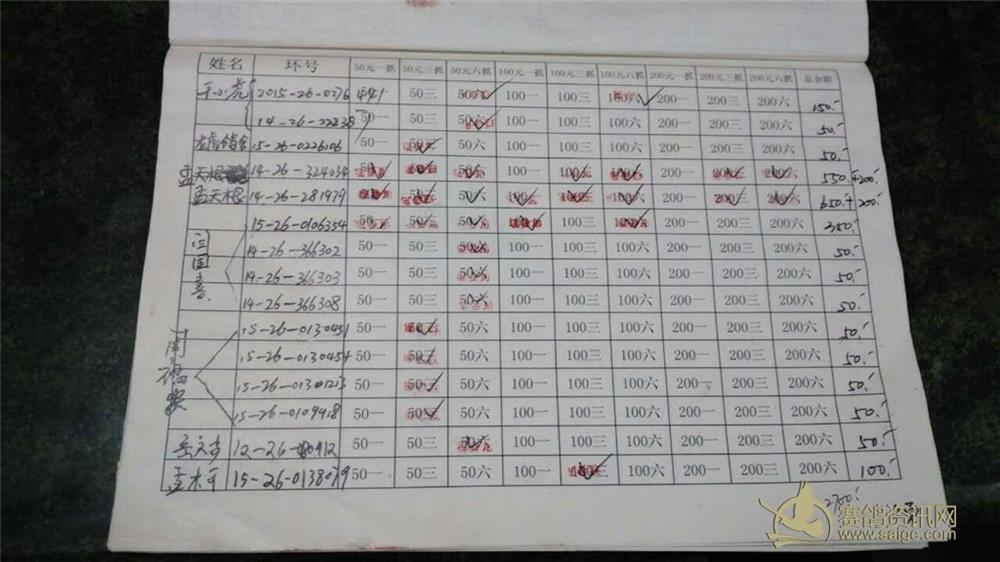 姓名 环号 50元一抓 50元三抓 50元六抓 100元一抓 100元三抓 100元六抓 200元一抓 200元三抓 200元六抓 总金额
王小虎 2015-26-0276441 50三 50六 100一 100三 100六 200一 200三 200六 150.-
14-26-22238 50一 50三 50六 100一 100三 100六 200一 200三 200六 50.-
15-26-0226106 50一 50三 50六 100一 100三 100六 200一 200三 200六 50.-
14-26-324034 50一 50三 50六 100一 100三 100六 200一 200三 200六 550.+200.-
孟天根 14-26-281979 50一 50三 50六 100一 100三 100六 200一 200三 200六 650.+200.-
15-26-0106354 50一 50三 50六 100一 100三 100六 200一 200三 200六 350.-
14-26-366302 50一 50三 50六 100一 100三 100六 200一 200三 200六 50.-
14-26-366303 50一 50三 50六 100一 100三 100六 200一 200三 200六 50.-
14-26-366308 50一 50三 50六 100一 100三 100六 200一 200三 200六 50.-
15-26-0130451 50一 50三 50六 100一 100三 100六 200一 200三 200六 50.-
15-26-0130454 50一 50三 50六 100一 100三 100六 200一 200三 200六 50.-
15-26-01301213 50一 50三 50六 100一 100三 100六 200一 200三 200六 50.-
15-26-0109418 50一 50三 50六 100一 100三 100六 200一 200三 200六 50.-
12-26- 50一 50三 50六 100一 100三 100六 200一 200三 200六 50.-
15-26-0138079 50一 50三 50六 100一 100三 100六 200一 200三 200六 100.-
2700.-
赛鸽资讯网
www.saige.com